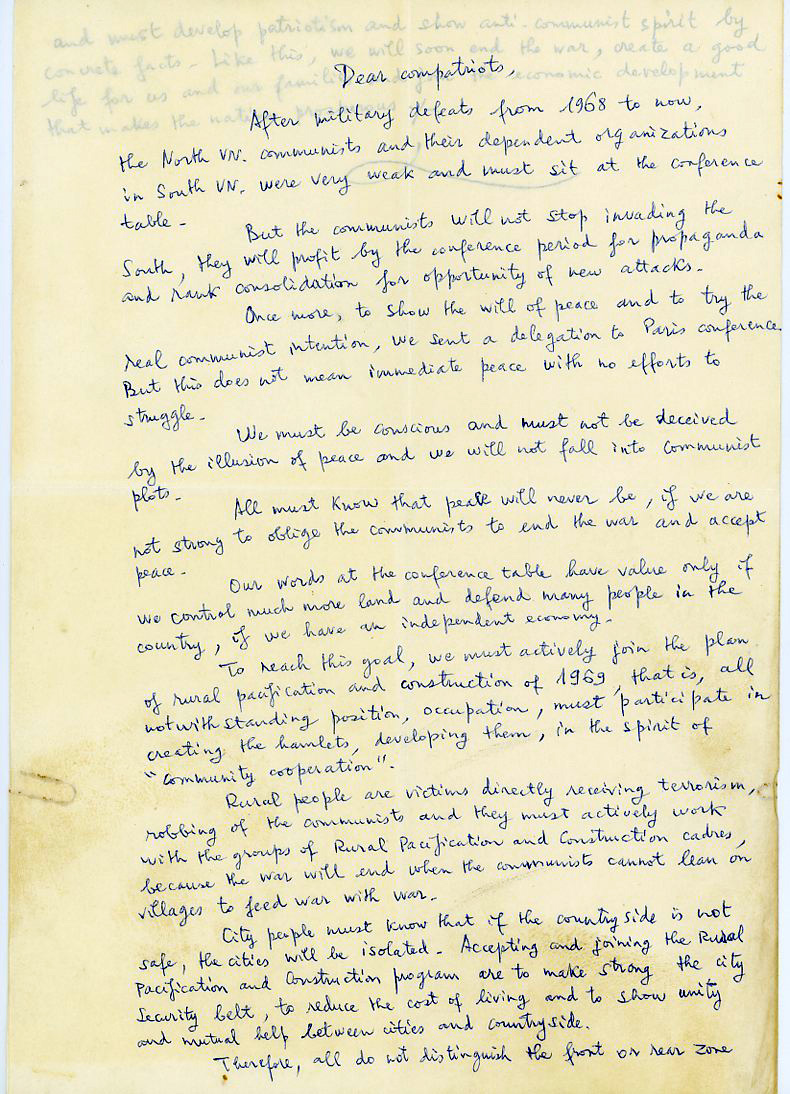 and must develop patriotism and show anti-communist spirit by
concrete facts - Like this, we will soon end the war, create a good
life for us and our famili economic development
that makes the nation prosperous
Dear compatriots,
After military defeats from 1968 to now,
the North VN. communists and their dependent organizations
in South VN. were very weak and must sit at the conference
table -
But the communists will not stop invading the
South, they will profit by the conference period for propaganda
and rank consolidation for opportunity of new attacks -
Once more, to show the will of peace and to try the
real communist intention, we sent a delegation to Paris conference.
But this does not mean immediate peace with no efforts to
struggle -
We must be conscious and must not be deceived
by the illusion of peace and we will not fall into communist
plots -
All must know that peace will never be, if we are
not strong to oblige the communists to end the war and accept
peace -
Our words at the conference table have value only if
we control much more land and defend many people in the
country, if we have an independent economy -
To reach this goal, we must actively join the plan
of rural pacification and construction of 1969, that is, all
notwithstanding position, occupation, must participate in
creating the hamlets, developing them, in the spirit of
"Community cooperation".
Rural people are victims directly receiving terrorism,
robbing of the communists and they must actively work
with the groups of Rural Pacification and Construction cadres,
because the war will end when the communists cannot lean on
villages to feed war with war -
City people must know that if the countryside is not
safe, the cities will be isolated - Accepting and joining the Rural
Pacification and Construction program are to make strong the city
Security belt, to reduce the cost of living and to show unity
and mutual help between cities and countryside.
Therefore, all do not distinguish the front or rear zone